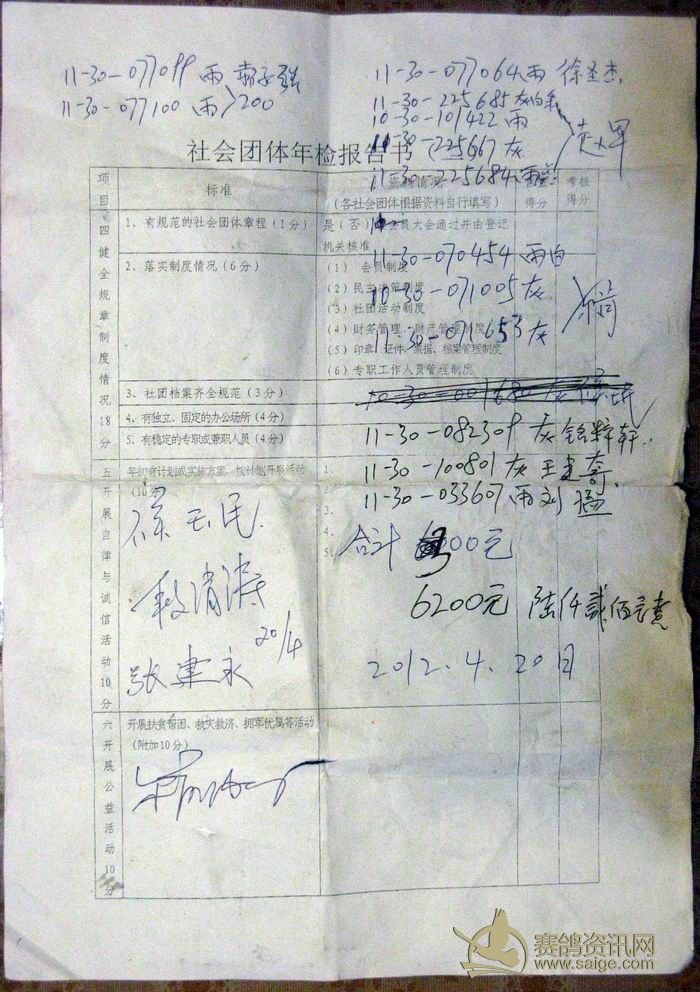 11-30-077099 雨
11-30-077100 雨 >200
11-30-077064 雨 徐圣杰
11-30-225685 灰白条
10-30-101422 雨
11-30-225667 灰
11-30-225684 雨
社会团体年检报告书
项目
标准
资料情况
(各社会团体根据资料自行填写)
得分
考核得分
四健全规章制度情况18分
1、有规范的社会团体章程(1分)
是(否) 员大会通过并由登记
机关核准
2、落实制度情况(6分)
(1) 会员制度
(2)民主决策制度
(3)社团活动制度
(4)财务管理、财产管理制度
(5)印章、证件、票据、档案管理制度
(6)专职工作人员管理制度
11-30-070454 雨白
10-30-071005 灰
11-30-071653 灰
3、社团档案齐全规范(3分)
4、有独立、固定的办公场所(4分)
5、有稳定的专职或兼职人员(4分)
11-30-082309 灰
11-30-100801 灰
11-30-033607 雨 刘猛
五开展自律与诚信活动10分
年初有计划或实施方案、按计划开展活动
(10分)
1、
2、
3、
4、
5、
合计 00元
6200元 陆仟贰佰元
20/4
张建永
2012.4.20日
六开展公益活动10分
开展扶贫帮困、救灾救济、拥军优属等活动
(附加10分)
赛鸽资讯网
www.saige.com